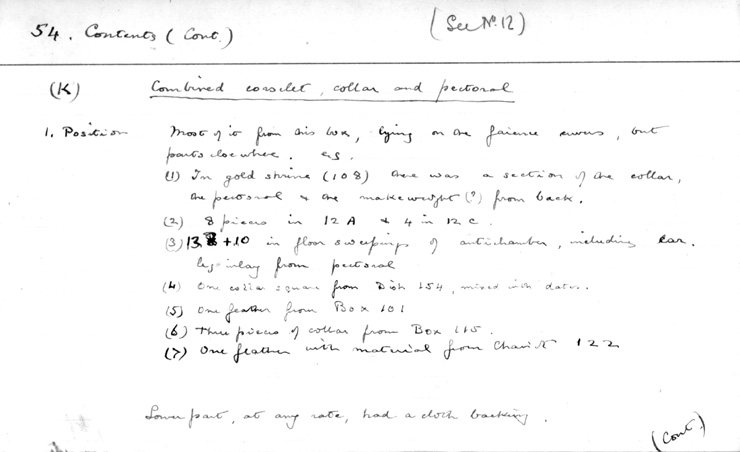 54. Contents (Cont.)
(See No. 12)
(K) Combined corslet, collar and pectoral
1. Position Most of it from this box, lying on the faience ewers, but
parts elsewhere. e.g.
(1) In gold shrine (108) there was a section of the collar,
the pectoral & the makeweight (?) from back.
(2) 8 pieces in 12A & 4 in 12C.
(3) 13 + 10 in floor sweepings of antichamber, including
leg-inlay from pectoral
(4) One collar square from Dish 154, mixed with dates.
(5) One feather from Box 101
(6) Three pieces of collar from Box 115.
(7) One feather with material from Chariot 122
Lower part, at any rate, had a cloth backing.
(Cont.)